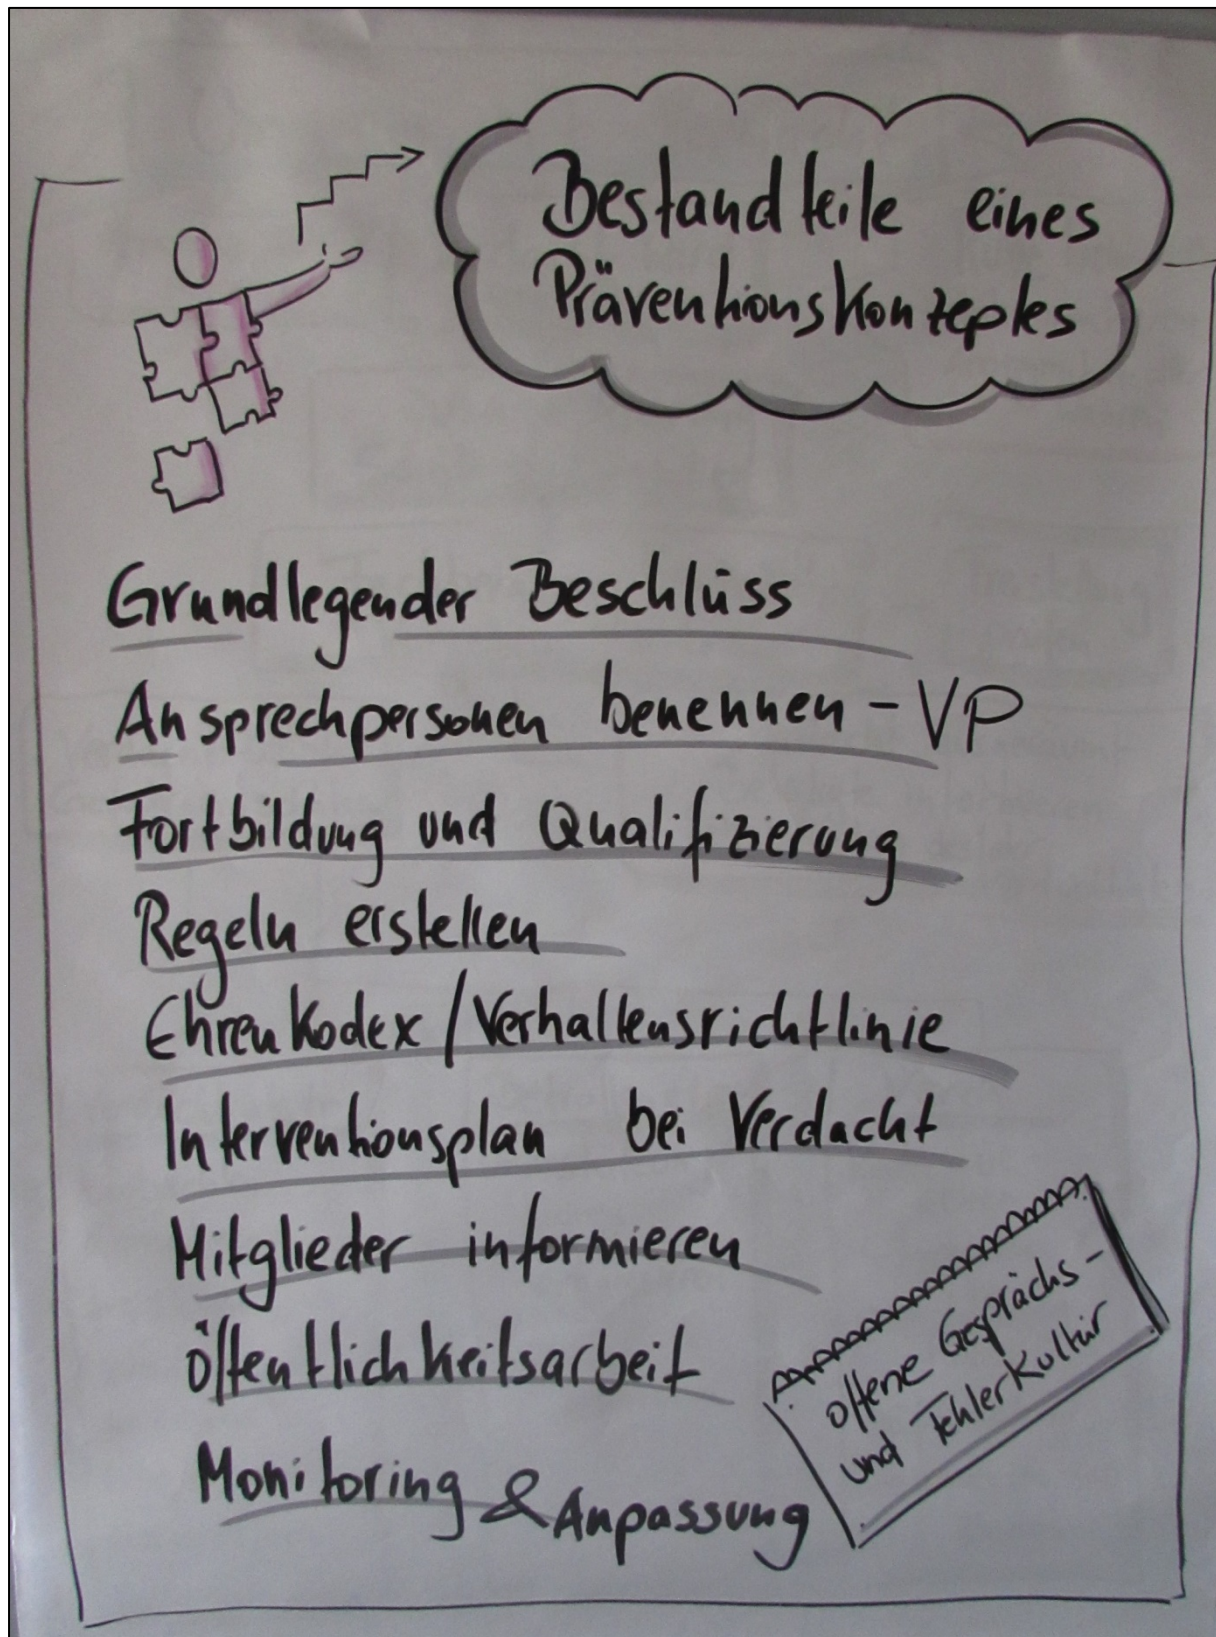 Bestandteile eines
Präventionskonzeptes
Grundlegender Beschluss
Ansprechpersonen benennen - VP
Fortbildung und Qualifizierung
Regeln erstellen
Ehrenkodex / Verhaltensrichtlinie
Interventionsplan bei Verdacht
Mitglieder informieren
Öffentlichkeitsarbeit
Monitoring & Anpassung
offene Gesprächs-
und Fehlerkultur